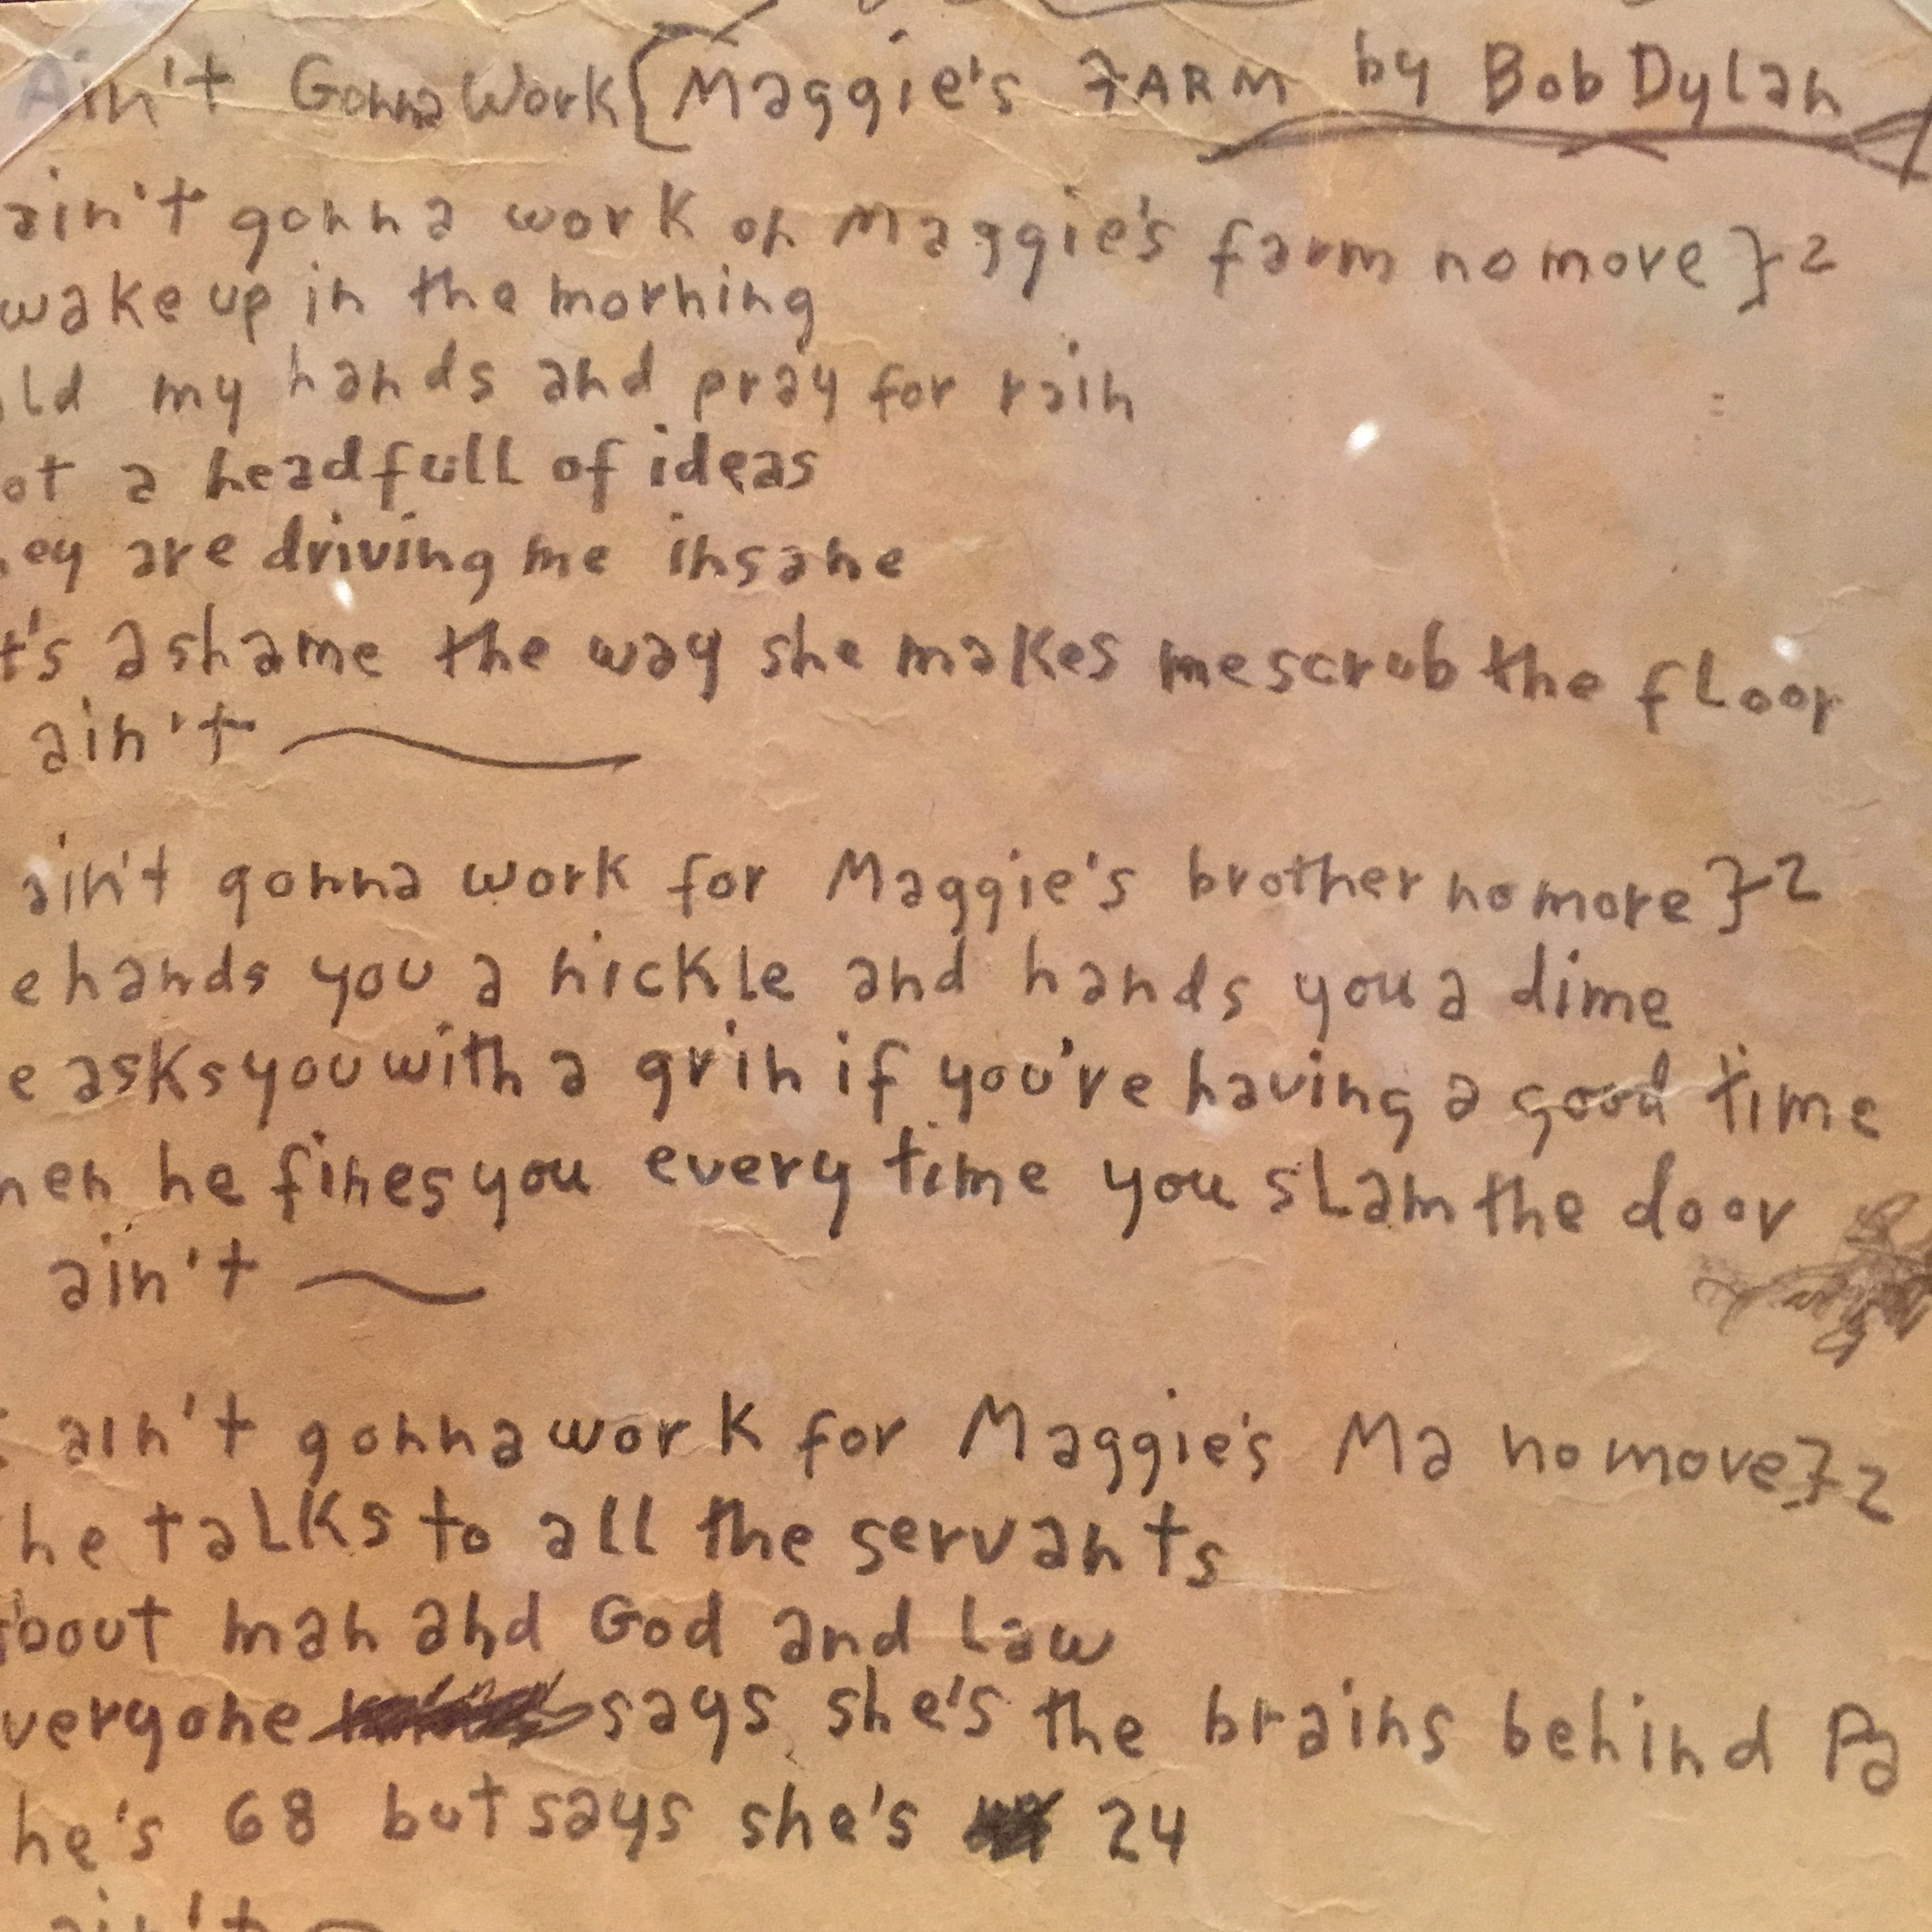 Ain't Gonna Work [Maggie's FARM by Bob Dylan
ain't gonna work on Maggie's farm no more } 2
wake up in the morning
ld my hands and pray for rain
ot a headfull of ideas
hey are driving me insane
t's a shame the way she makes me scrub the floor
ain't ——
ain't gonna work for Maggie's brother no more } 2
e hands you a nickle and hands you a dime
e asks you with a grin if you're having a good time
hen he fines you every time you slam the door
ain't ——
ain't gonna work for Maggie's Ma no more } 2
he talks to all the servants
about man and God and law
veryone says she's the brains behind Pa
he's 68 but says she's 24
ain't